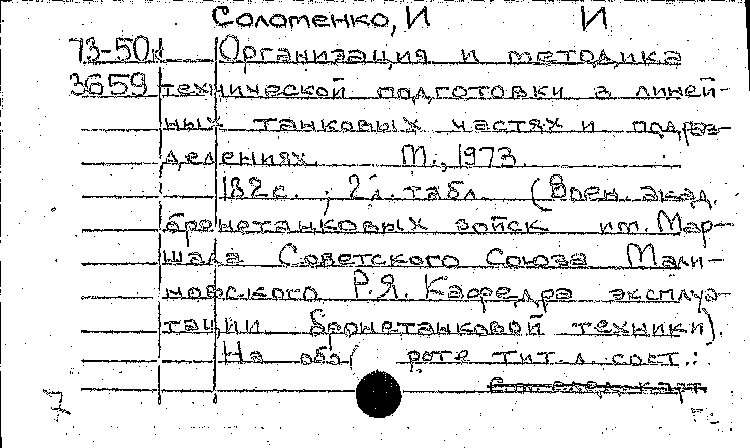 Соломенко, И И
73-50к Организация и методика
3659 технической подготовки в линей-
ных танковых частях и подраз-
делениях. М., 1973.
182с.; 2 л. табл. (Воен. акад.
бронетанковых войск им. Мар-
шала Советского Союза Мали-
новского Р.Я. Кафедра эксплуа-
тации бронетанковой техники).
На обо( роте тит. л. сост.:
См. след. карт
7